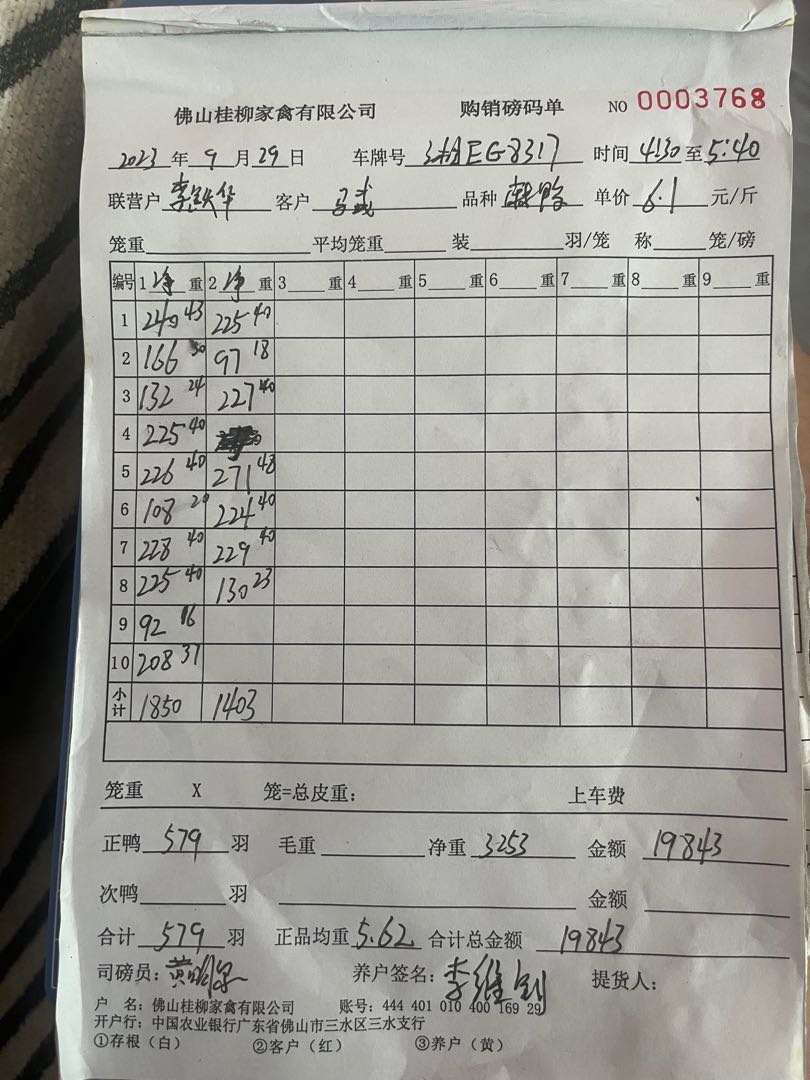 佛山桂柳家禽有限公司 购销磅码单 NO 0003768
2023 年 9 月 29 日 车牌号 EG8317 时间 4:30 至 5:40
联营户 李铁华 客户 品种 单价 6.1 元/斤
笼重 平均笼重 装 羽/笼 称 笼/磅
编号 1 净 重 2 净 重 3 重 4 重 5 重 6 重 7 重 8 重 9 重
1 240 43 225 40
2 166 30 97 18
3 132 24 227 40
4 225 40
5 226 40 271 48
6 108 20 224 40
7 228 40 229 40
8 225 40 130 23
9 92 16
10 208 37
小计 1850 1403
笼重 X 笼=总皮重: 上车费
正鸭 579 羽 毛重 净重 3253 金额 19843
次鸭 羽 金额
合计 579 羽 正品均重 5.62 合计总金额 19843
司磅员: 养户签名: 李维钊 提货人:
户 名: 佛山桂柳家禽有限公司 账号: 444 401 010 400 169 29
开户行: 中国农业银行广东省佛山市三水区三水支行
①存根（白） ②客户（红） ③养户（黄）